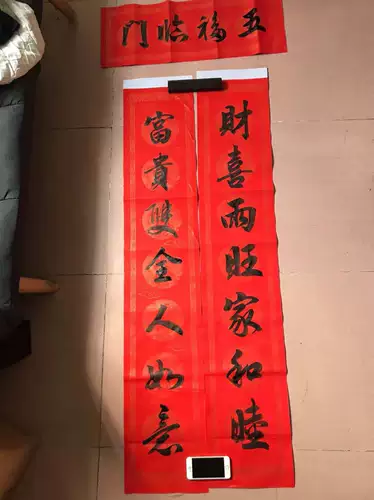 五福临門
財喜兩旺家和睦
富貴雙全人如意